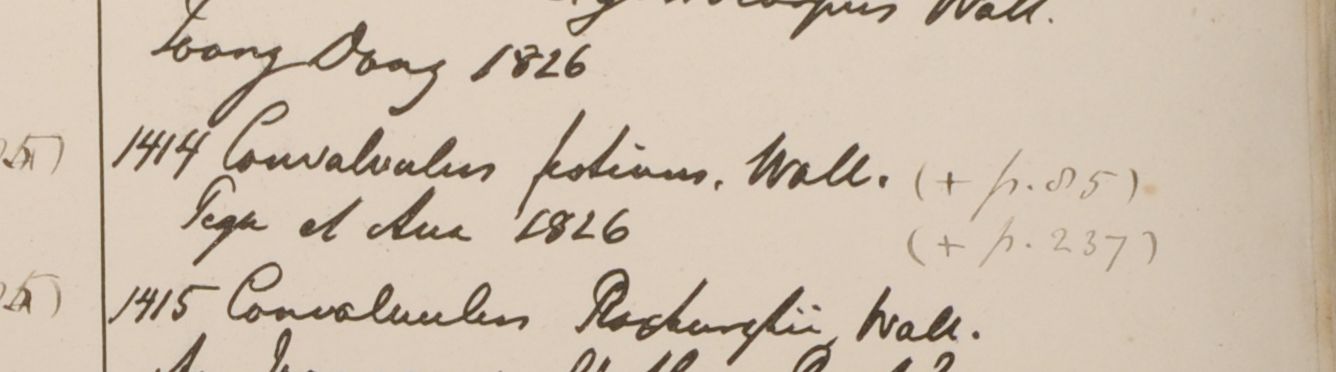 Wall.
Toong Dong 1826
1414 Convalvulus festivus. Wall. (+ p. 85)
Pegu et Ava 1826
(+ p. 237)
1415 Convalvulus Roxburghii Wall.